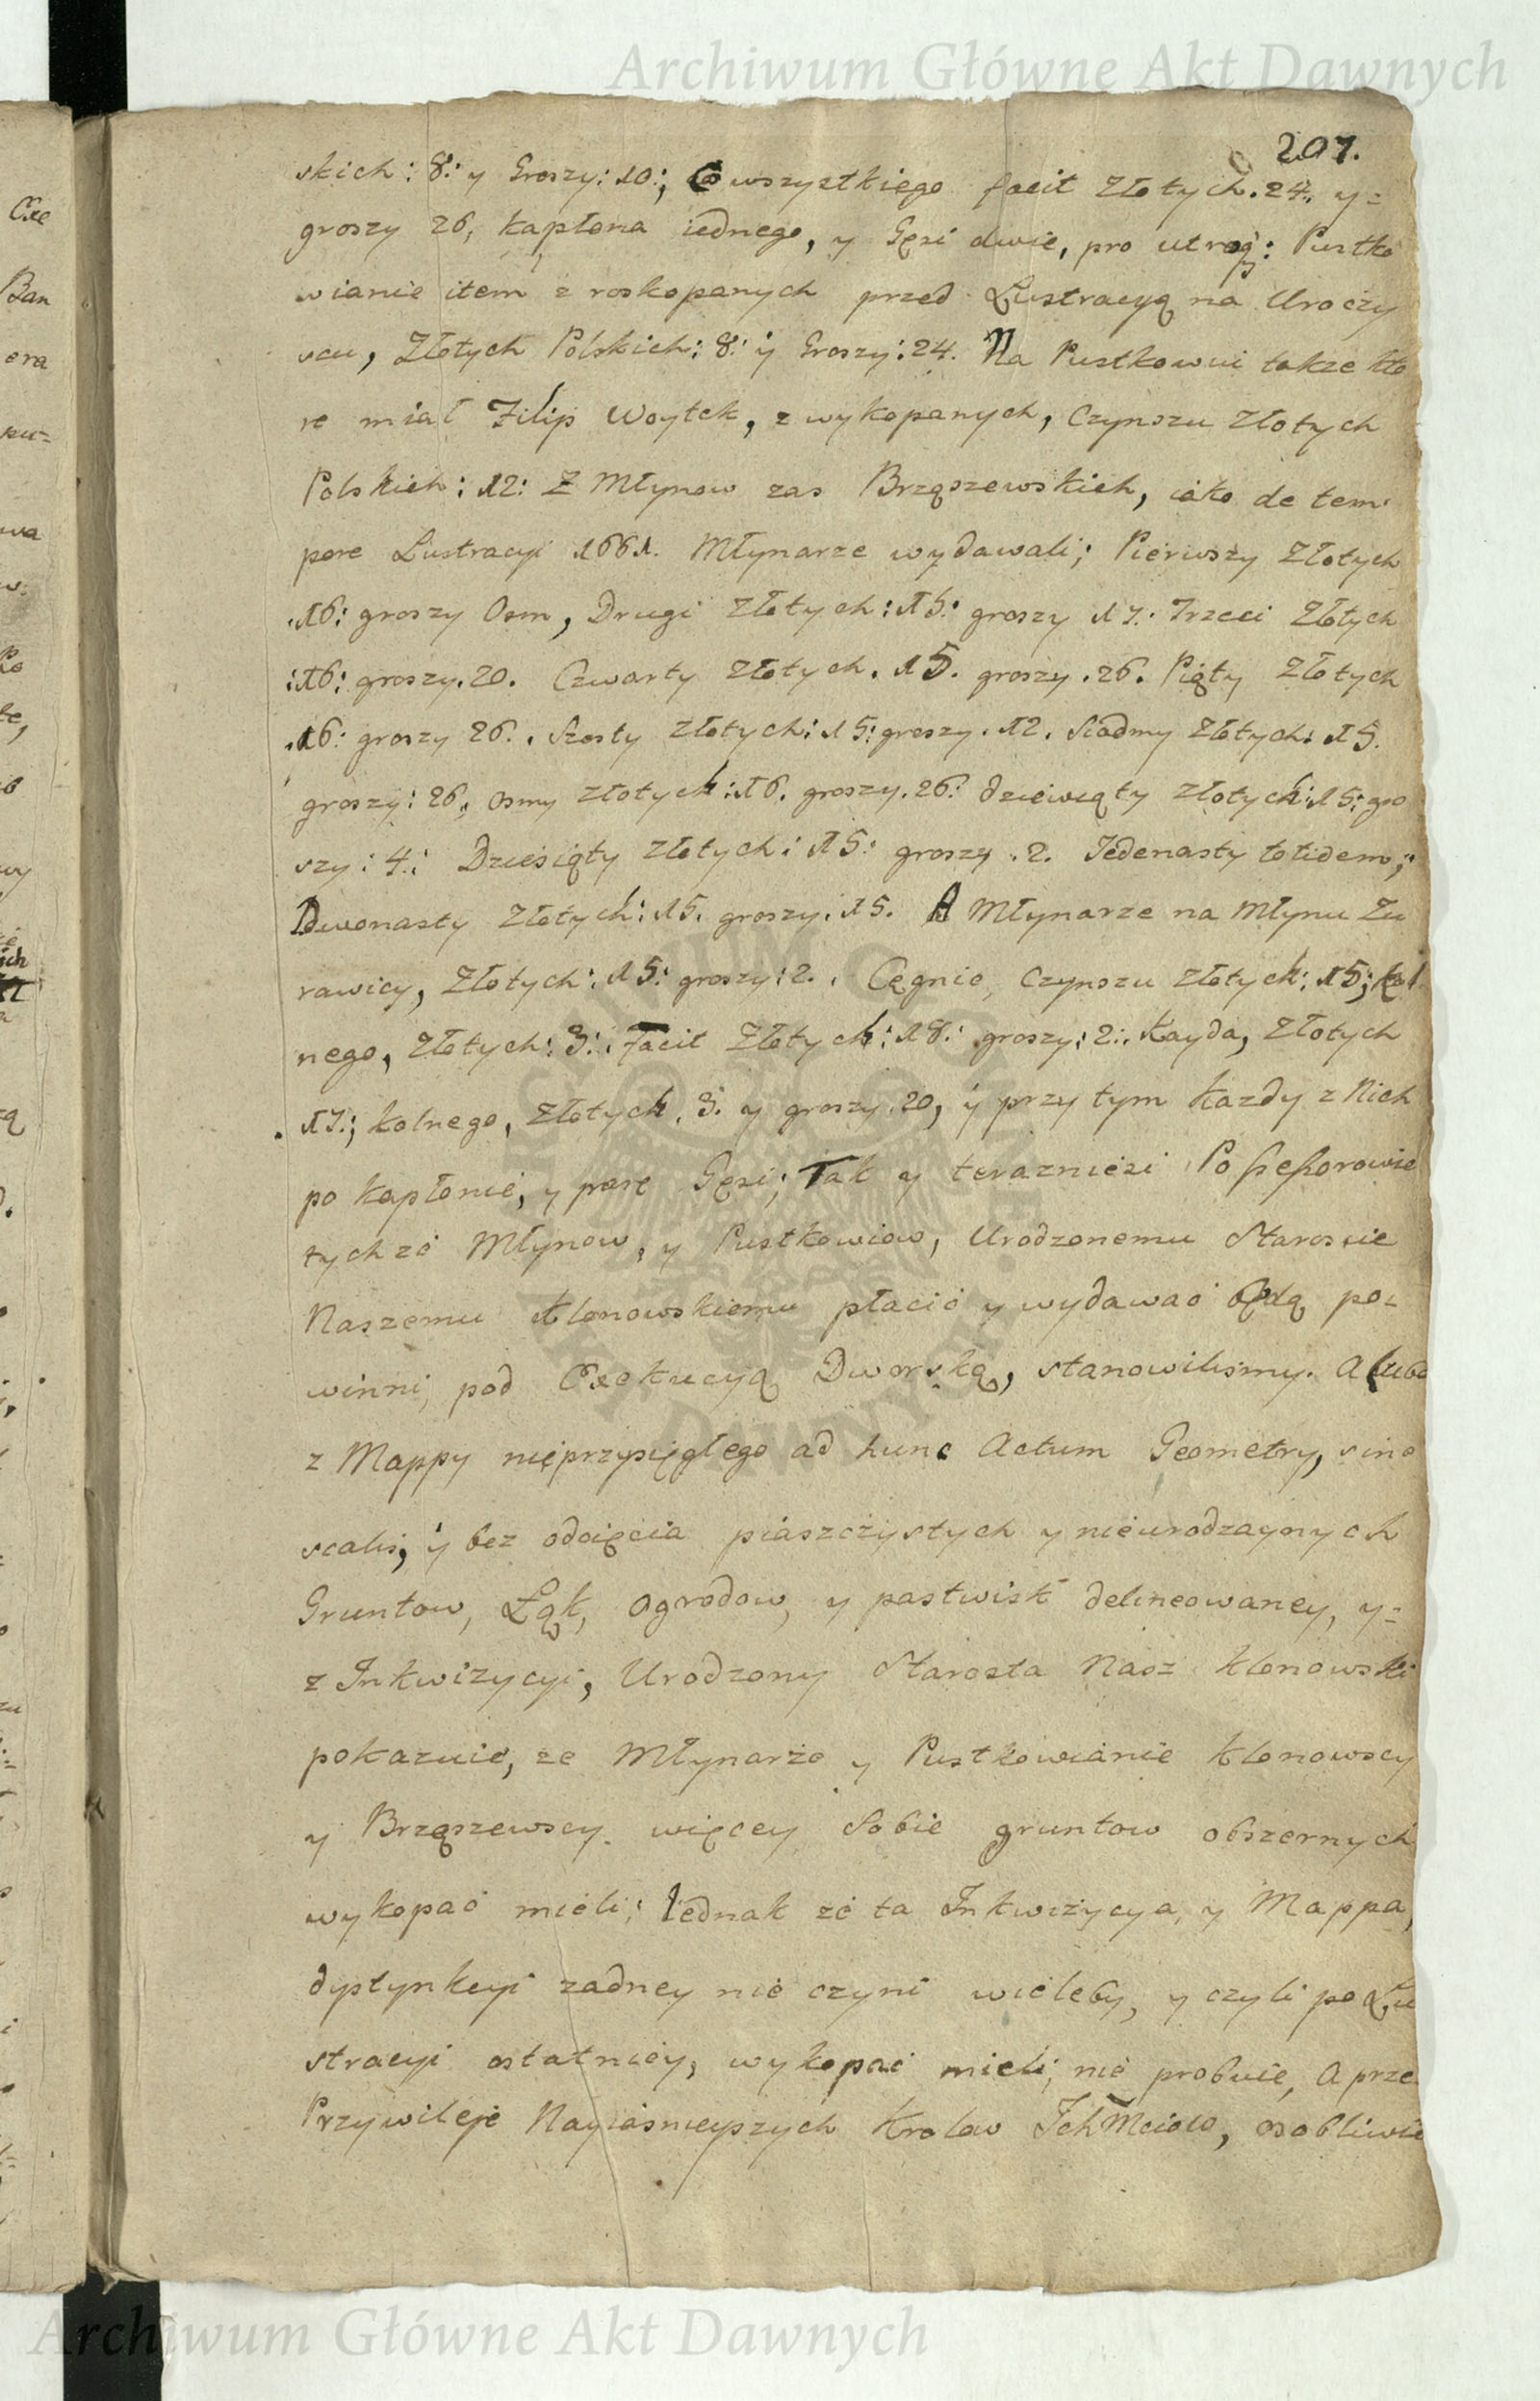 Archiwum Główne Akt Dawnych
207.
skich: 8: y Groszy: 10:; Co wszystkiego facit Złotych. 24. y=
groszy 26, kapłona iednego, y Gęsi dwie, pro utroq: Pustko
wianie item z roskopanych przed Lustracyą na Uroczy
scu, Złotych Polskich: 8: y Groszy: 24. Na Pustkowiu także kto
re miał Filip Woytek, z wykopanych, Czynszu Złotych
Polskich: 12: Z Młynow zas Brząszewskich, iako de tem
pore Lustracyi 1661. Młynarze wydawali; Pierwszy Złotych
.16: groszy Osm, Drugi Złotych: 15: groszy 17. Trzeci Złotych
:16: groszy. 20. Czwarty Złotych. 15. groszy .26. Piąty Złotych
.16: groszy 26. . Szosty Złotych: 15: groszy. 12. Siadmy Złotych: 15.
groszy: 26, osmy Złotych: 16. groszy. 26: dziewiąty Złotych: 15: gro
szy: 4.: Dziesiąty Złotych: 15: groszy .2. Jedenasty totidem;
Dwonasty Złotych: 15. groszy. 15. A Młynarze na Młynu Żu
rawicy, Złotych: 15: groszy: 2. . Cęgnie, Czynszu Złotych: 15; kol
nego, Złotych: 3: . Facit Złotych: 18: groszy: 2:. Kayda, Złotych
. 17.; kolnego, Złotych. 3. y groszy. 20, y przy tym każdy z Nich
po kapłonie, y parę Gęsi; Tak y teraznieisi Possessorowie
tychże Młynow, y Pustkowiow, Urodzonemu Staroscie
Naszemu Klonowskiemu płacić y wydawać będą po=
winni, pod Exekucyą Dworską, stanowilismy. A lubo
z Mappy nieprzysięgłego ad hunc Actum Geometry, sine
scalis, y bez odcięcia piaszczystych y nieurodzaynych
Gruntow, Łąk, Ogrodow, y pastwisk delineowaney, y=
z Inkwizycyi, Urodzony Starosta Nasz Klonowski
pokazuie, ze Młynarze y Pustkowianie Klonowscy
y Brząszewscy więcey Sobie gruntow obszernych
wykopać mieli; Iednak że ta Inkwizycya, y Mappa,
dystynkcyi zadney nie czyni wieleby, y czyli po Lu
stracyi ostatniey, wykopać mieli, nie probuie, A prze
Przywileje Nayiasnieyszych Krolow IchMciow, osobliwie
Archiwum Główne Akt Dawnych